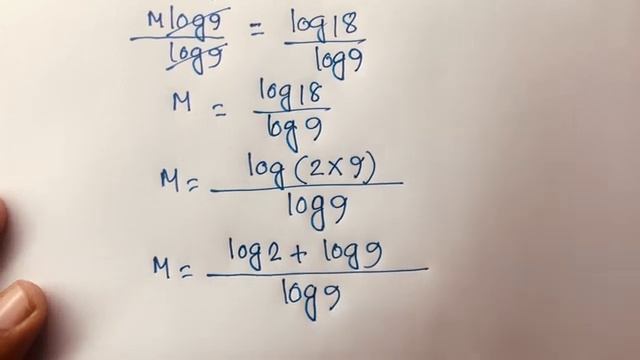 M log9 / log9 = log18 / log9
M = log18 / log9
M = log(2×9) / log9
M = log2 + log9 / log9